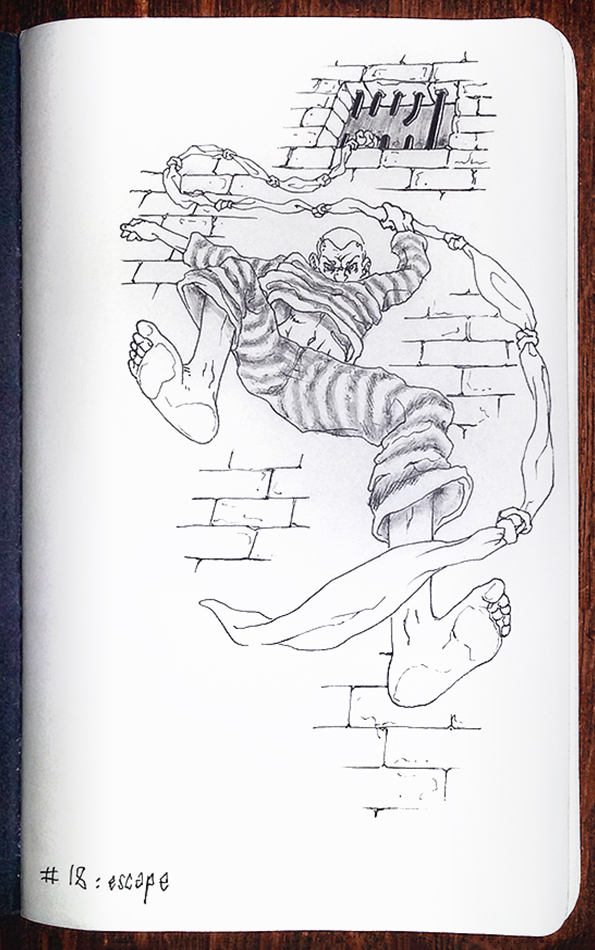 # 18 : escape